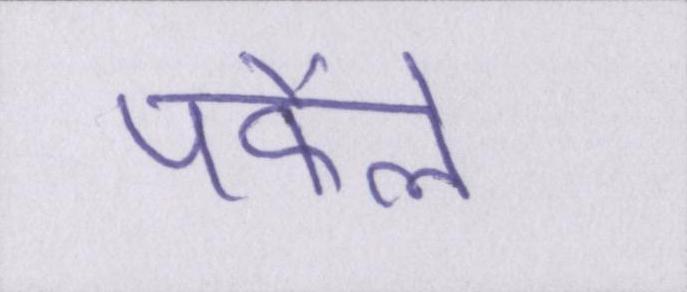 पकैले